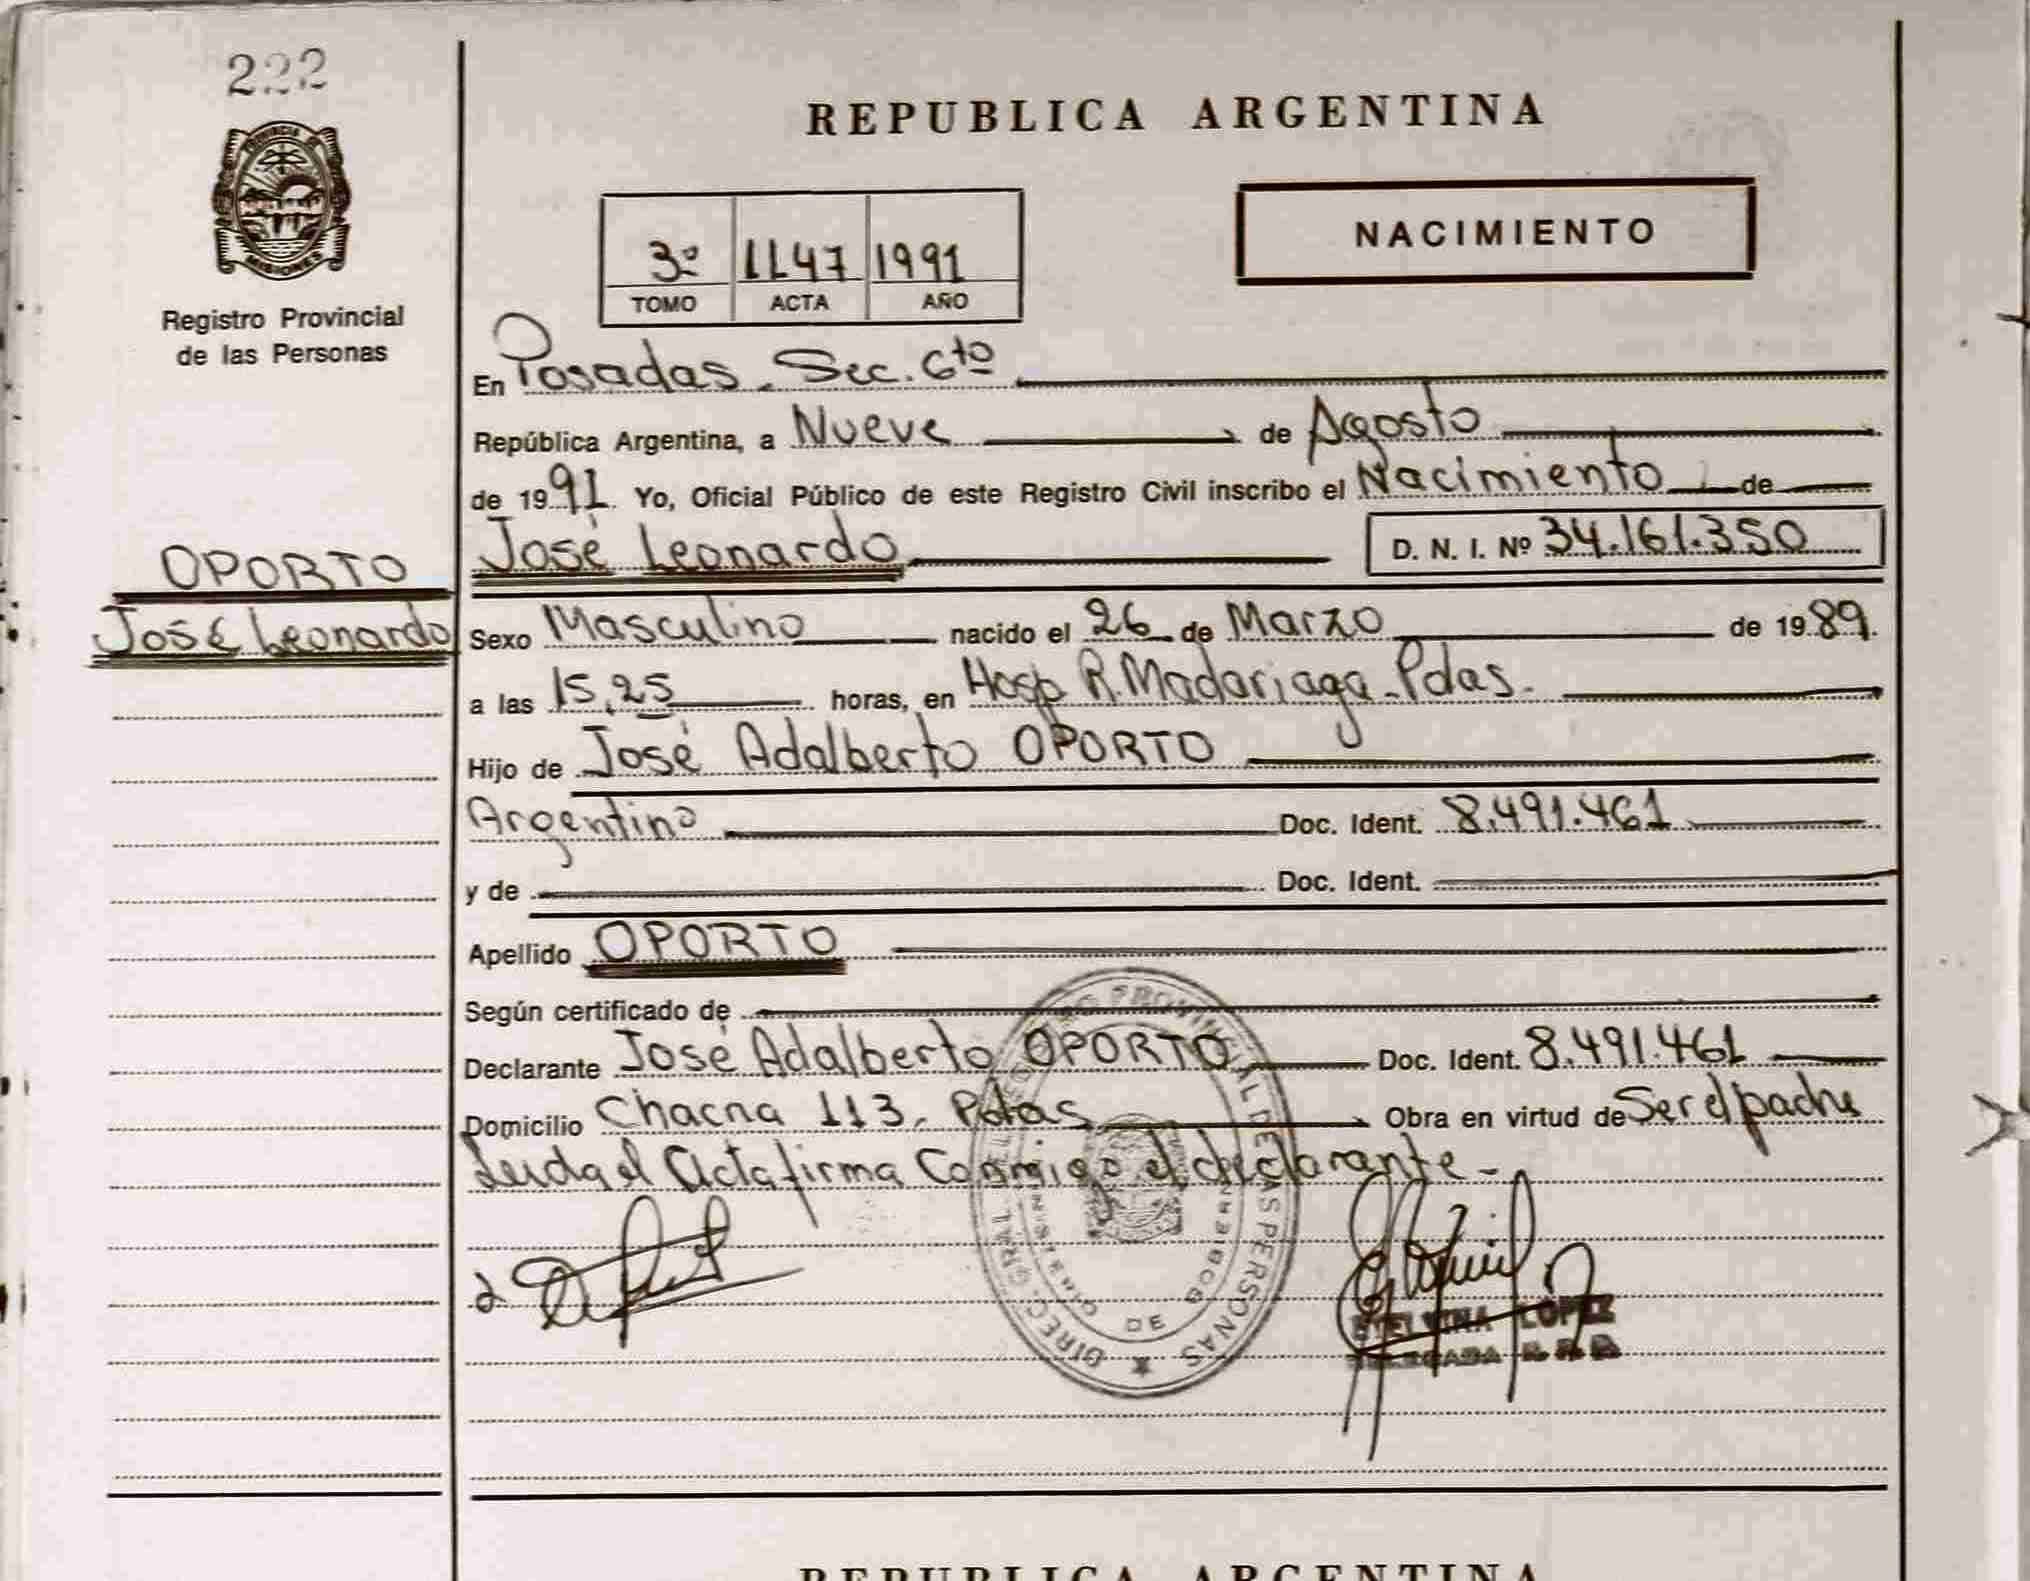 222
PROVINCIA DE
MISIONES
Registro Provincial
de las Personas
OPORTO
José Leonardo
REPUBLICA ARGENTINA
3º 1147 1991
TOMO ACTA AÑO
NACIMIENTO
En Posadas. Sec. 6to
República Argentina, a Nueve de Agosto
de 1991. Yo, Oficial Público de este Registro Civil inscribo el Nacimiento de
José Leonardo D. N. I. Nº 34.161.350
Sexo Masculino nacido el 26 de Marzo de 1989.
a las 15,25 horas, en Hosp R. Madariaga - Pdas.
Hijo de José Adalberto OPORTO
Argentino Doc. Ident. 8.491.461
y de Doc. Ident.
Apellido OPORTO
Según certificado de
Declarante José Adalberto OPORTO Doc. Ident. 8.491.461
Domicilio Chacra 113. Pdas Obra en virtud de Ser el padre
Leida el Acta firma Conmigo el declarante -
DIREC. GRAL. DEL REGISTRO PROVINCIAL DE LAS PERSONAS
LOPEZ
REPUBLICA ARGENTINA